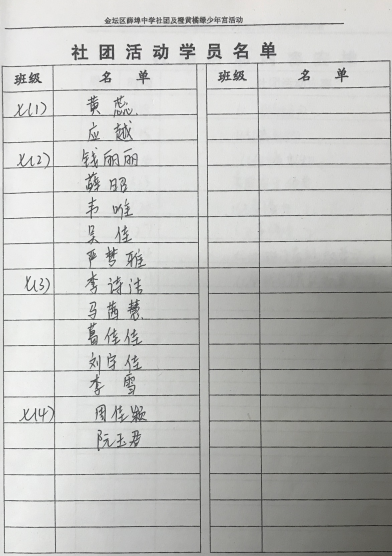 金坛区薛埠中学社团及橙黄橘绿少年宫活动
社团活动学员名单
班级 名单 班级 名单
七(1) 黄蕊
应越
七(2) 钱丽丽
薛昭
韦唯
吴佳
严梦雅
七(3) 李诗洁
马茜慧
葛佳佳
刘宇佳
李雪
七(4) 周佳颖
阮玉君